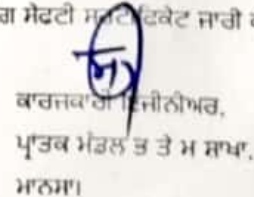 ਸੇਫਟੀ ਸਰਟੀਫਿਕੇਟ ਜਾਰੀ
ਕਾਰਜਕਾਰੀ ਇੰਜੀਨੀਅਰ,
ਪ੍ਰਾਂਤਕ ਮੰਡਲ ਭ ਤੇ ਮ ਸ਼ਾਖਾ,
ਮਾਨਸਾ।